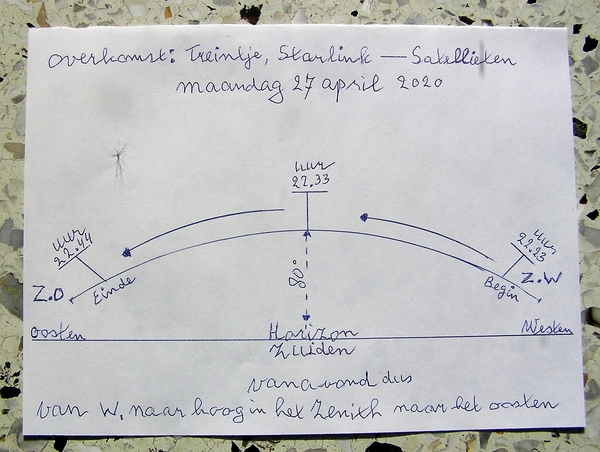 overkomst: Treintje, Starlink — Satellieten
maandag 27 april 2020
uur
22.33
uur
22.44
uur
22.23
80°
Z.O
Einde
Begin
Z.W
oosten
Horizon
Westen
Zuiden
vanavond dus
van W. naar hoog in het Zenith naar het oosten